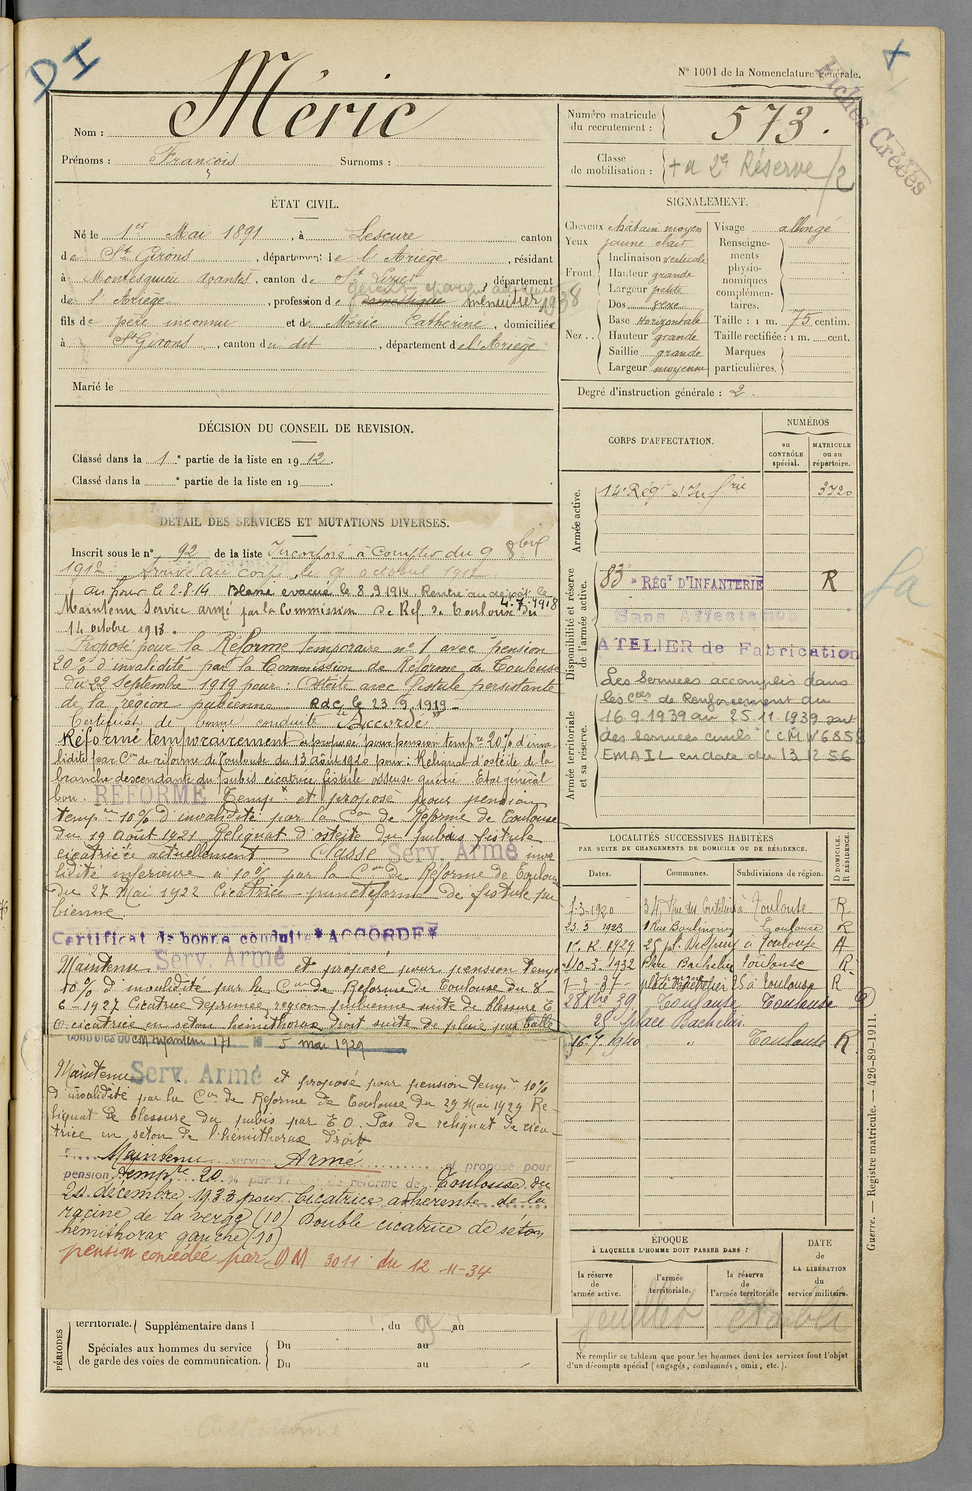 DI
N° 1001 de la Nomenclature générale.
Fiches Créées
Nom : Méric
Prénoms : François Surnoms :
Numéro matricule du recrutement : 573.
Classe de mobilisation : + a 2e Réserve /2
ÉTAT CIVIL.
Né le 1er Mai 1891, à Lescure canton
de St Girons, département de l'Ariège, résidant
à Montesquieu Avantès, canton de St Lizier, département
de l'Ariège, profession de domestique menuisier 1938
fils de père inconnu et de Méric Catherine, domiciliée
à St Girons, canton du dit, département de l'Ariège
Marié le
SIGNALEMENT.
Cheveux châtain moyen
Yeux jaune clair
Front. Inclinaison verticale
Hauteur grande
Largeur petite
Nez .. Dos sexe
Base Horizontale
Hauteur grande
Saillie grande
Largeur moyenne
Visage allongé
Renseignements physionomiques complémentaires.
Taille : 1 m. 75 centim.
Taille rectifiée : 1 m. cent.
Marques particulières.
Degré d'instruction générale : 2.
DÉCISION DU CONSEIL DE REVISION.
Classé dans la 1e partie de la liste en 1912.
Classé dans la e partie de la liste en 19 .
CORPS D'AFFECTATION.
NUMÉROS
au CONTRÔLE spécial.
MATRICULE ou au répertoire.
Armée active.
14e Régt d'Infrie 3720
Disponibilité et réserve de l'armée active.
83e RÉGt D'INFANTERIE R
Sans Affectation
ATELIER de Fabrication
Armée territoriale et sa réserve.
Les services accomplis dans
les Cies de Renforcement du
16.9.1939 au 25.11.1939 sont
des services civils (CCM N° 6858
EMAIL en date du 13.12.56
DÉTAIL DES SERVICES ET MUTATIONS DIVERSES.
Inscrit sous le n° 92 de la liste Incorporé à compter du 9 8bre
1912. Arrivé au corps le 9 octobre 1912
au front le 2.8.14. Blessé évacué le 8.9.1914. Rentré au dépôt le
4.7.1918
Maintenu Service armé par la Commission de Ref. de Toulouse du
14 octobre 1918.
Proposé pour la Réforme temporaire n° 1 avec pension
20% d'invalidité par la Commission de Réforme de Toulouse
du 22 Septembre 1919 pour : Ostéite avec fistule persistante
de la région pubienne. RDC le 23.9.1919 -
Certificat de bonne conduite "Accordé"
Réformé temporairement et proposé pour pension tempre 20% d'inva-
lidité par Con de réforme de Toulouse du 13 août 1920 pour : Reliquat d'ostéite de la
branche descendante du pubis cicatrice fistule osseuse guérie. Etat général
bon. REFORMÉ Tempre et proposé pour pension
tempre 10% d'invalidité par la Con de Réforme de Toulouse
du 19 Août 1921 Reliquat d'ostéite du pubis fistule
cicatrisée actuellement. Classé Serv. Armé inva-
lidité inférieure à 10% par la Con de Réforme de Toulouse
du 27 Mai 1922 Cicatrice punctiforme de fistule pu
bienne
Certificat de bonne conduite "ACCORDÉ"
Maintenu Serv. Armé et proposé pour pension temp.
10% d'invalidité par la Con de Réforme de Toulouse du 8-
6-1927 Cicatrice déprimée région pubienne suite de blessure E
O cicatrice en séton hémithorax droit suite de plaie par balle
5 mai 1929
Maintenu Serv. Armé et proposé pour pension tempre 10%
d'invalidité par la Con de Réforme de Toulouse du 29 Mai 1929 Re-
liquat de blessure du pubis par E O. Pas de reliquat de cica-
trice en séton de l'hémithorax droit
Maintenu service Armé et proposé pour
pension tempre 20 % par la Con de réforme de Toulouse du
20 décembre 1933 pour Cicatrice adhérente de la
racine de la verge (10) Double cicatrice de séton
hémithorax gauche (10)
pension concédée par DM 3011 du 12-11-34
LOCALITÉS SUCCESSIVES HABITÉES
PAR SUITE DE CHANGEMENTS DE DOMICILE OU DE RÉSIDENCE.
Dates. Communes. Subdivisions de région. D DOMICILE. R RÉSIDENCE.
1-3-1920 34, Rue des Couteliers à Toulouse R
Toulouse R
25 pl. à Toulouse
10-3-1932 Place Bachelier Toulouse R
25 à Toulouse R
Toulouse Toulouse
25 place Bachelier
16.7.1940 " Toulouse R
ÉPOQUE
À LAQUELLE L'HOMME DOIT PASSER DANS :
la réserve de l'armée active.
l'armée territoriale.
la réserve de l'armée territoriale
DATE de LA LIBÉRATION du service militaire.
feuillet double
Ne remplir ce tableau que pour les hommes dont les services font l'objet
d'un décompte spécial (engagés, condamnés, omis, etc.).
PÉRIODES
territoriale. Supplémentaire dans l , du au
Spéciales aux hommes du service de garde des voies de communication.
Du au
Du au
Guerre. — Registre matricule. — 426-89-1911.